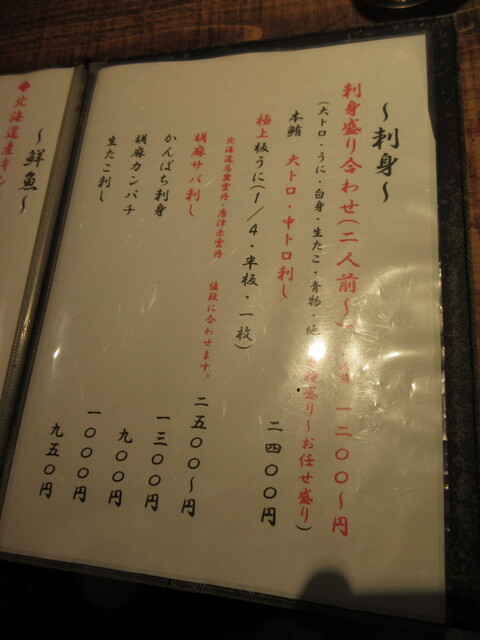 ～刺身～
刺身盛り合わせ(二人前～) 一二〇〇～円
(大トロ・うに・白身・生たこ・青物・他 盛り～お任せ盛り)
本鮪 大トロ・中トロ刺し 二四〇〇円
極上板うに(1/4・半板・一枚) 二五〇〇～円
北海道馬糞雲丹・唐津赤雲丹 値段に合わせます。
胡麻サバ刺し 一三〇〇円
かんぱち刺身 九〇〇円
胡麻カンパチ 一〇〇〇円
生たこ刺し 九五〇円
～鮮魚～
◆北海道産キン